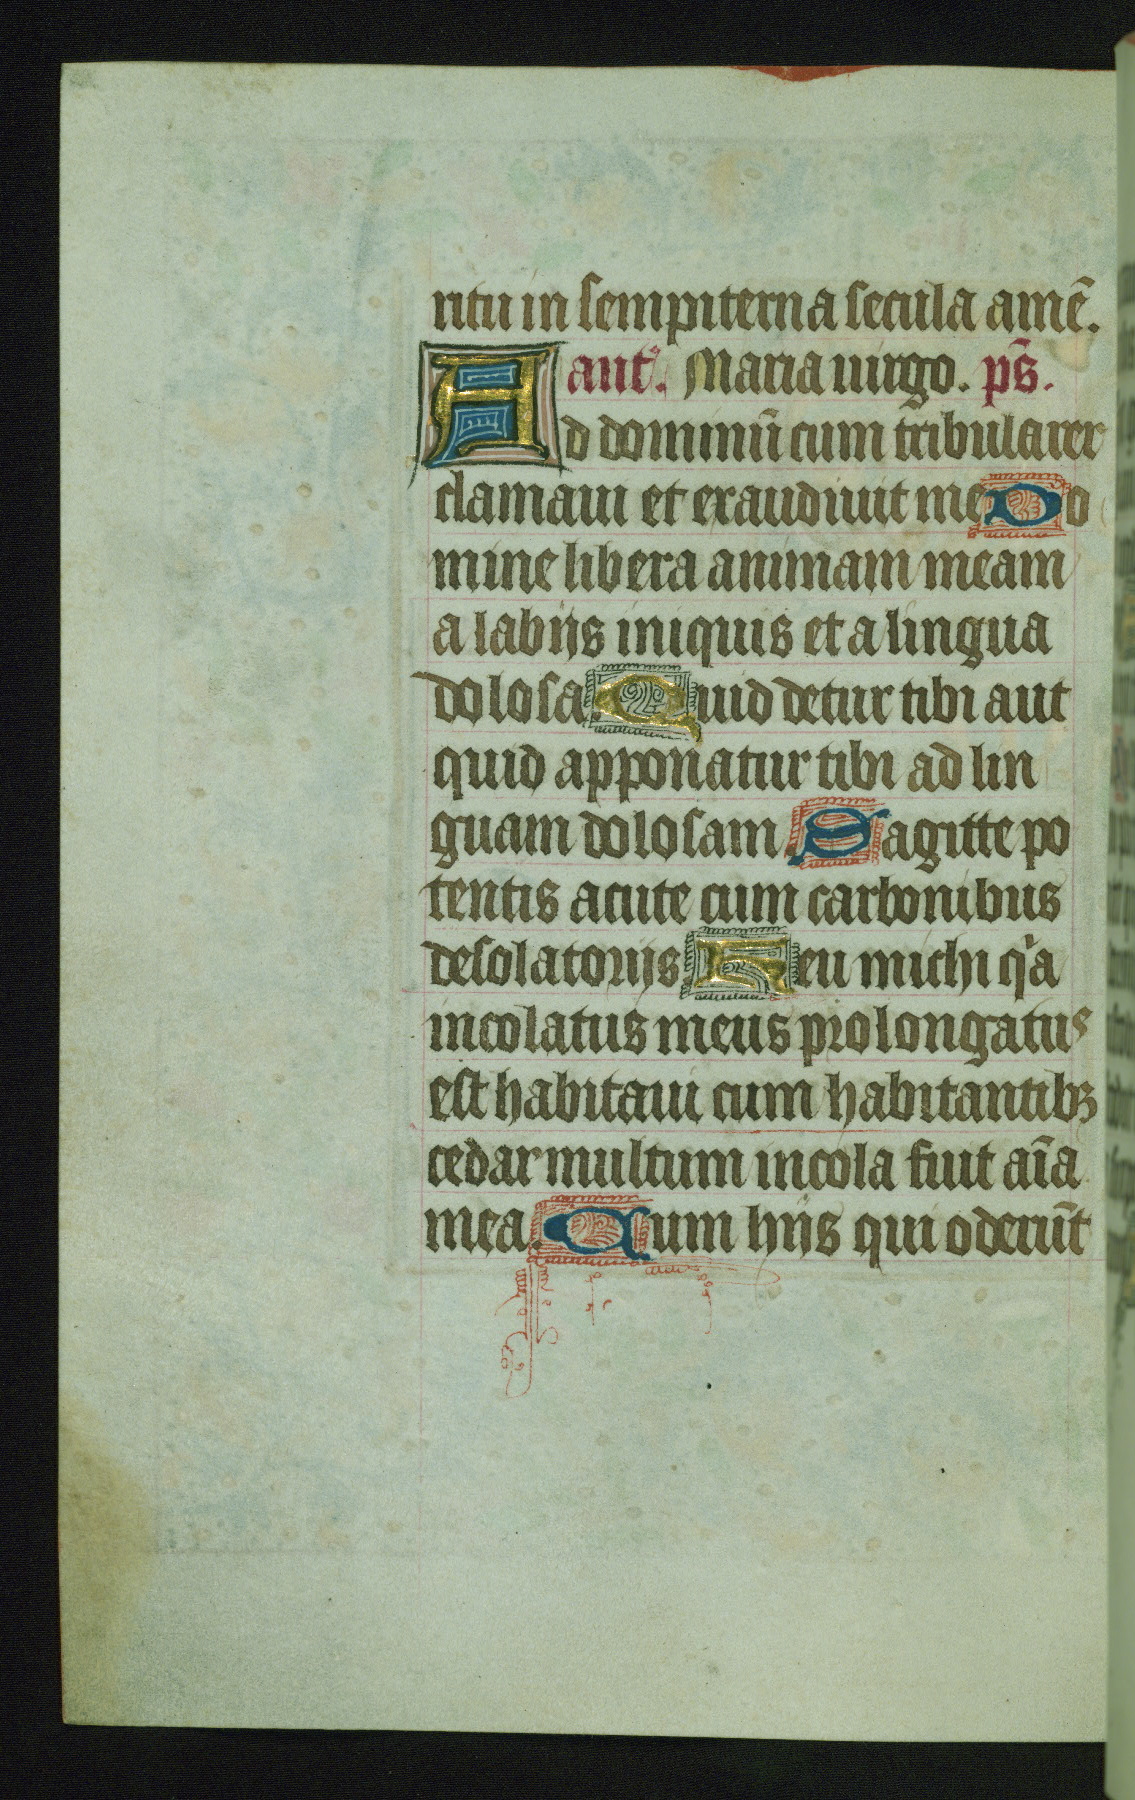 ritu in sempiterna secula amē.
ant̄. Maria uirgo. ps̄.
Ad dominū cum tribularer
clamaui et exaudiuit me Do
mine libera animam meam
a labijs iniquis et a lingua
dolosa. Quid detur tibi aut
quid apponatur tibi ad lin
guam dolosam. Sagitte po
tentis acute cum carbonibus
desolatorijs. Heu michi qͥa
incolatus meus prolongatus
est habitaui cum habitantibꝫ
cedar multum incola fuit aīa
mea. Cum hijs qui oderūt